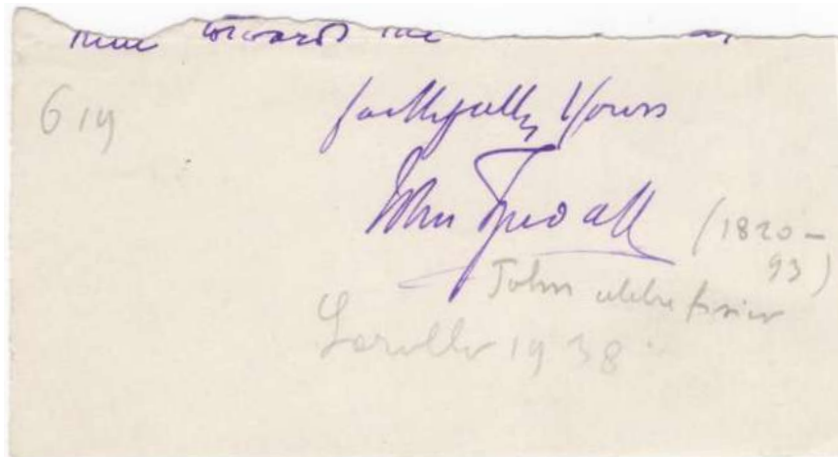 towards the
619
faithfully Yours
John Tyndall
(1820–
93)
John
1938